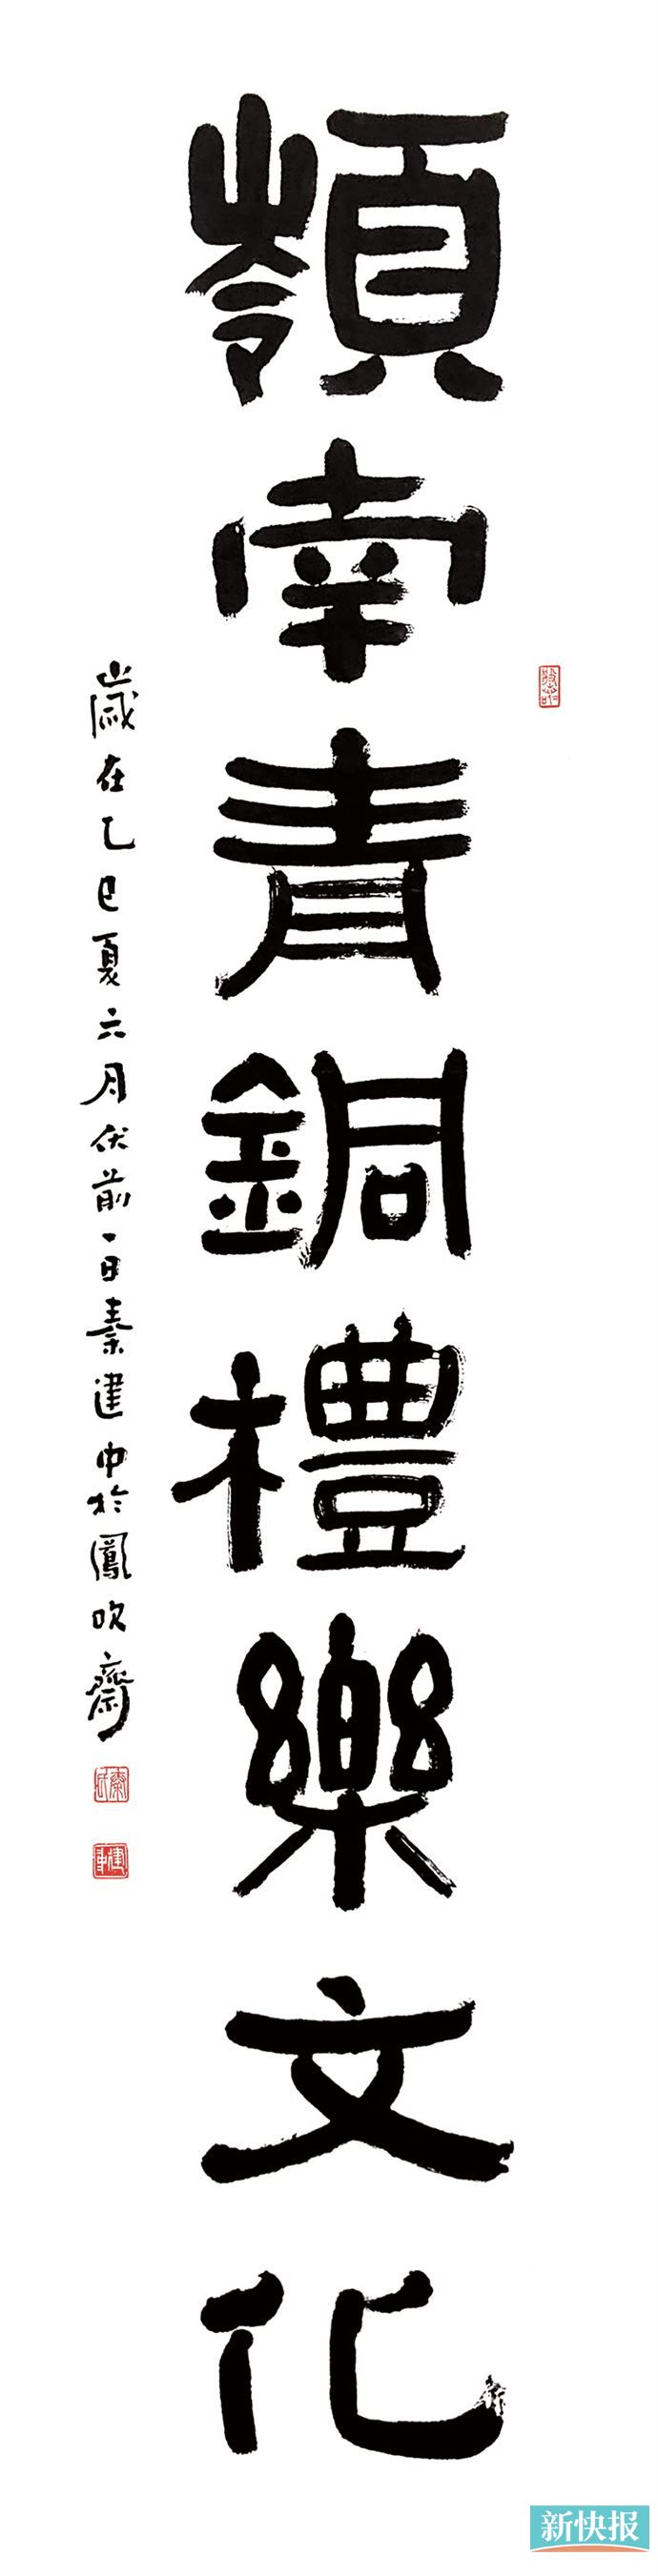 嶺南青銅禮樂文化
歲在乙巳夏六月伏前一日秦建中於鳳吹齋
秦氏
建中
新快报